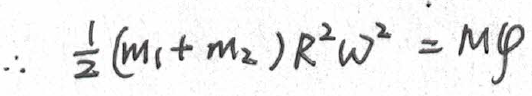 ∴ ½(m₁+m₂)R²ω² = Mφ